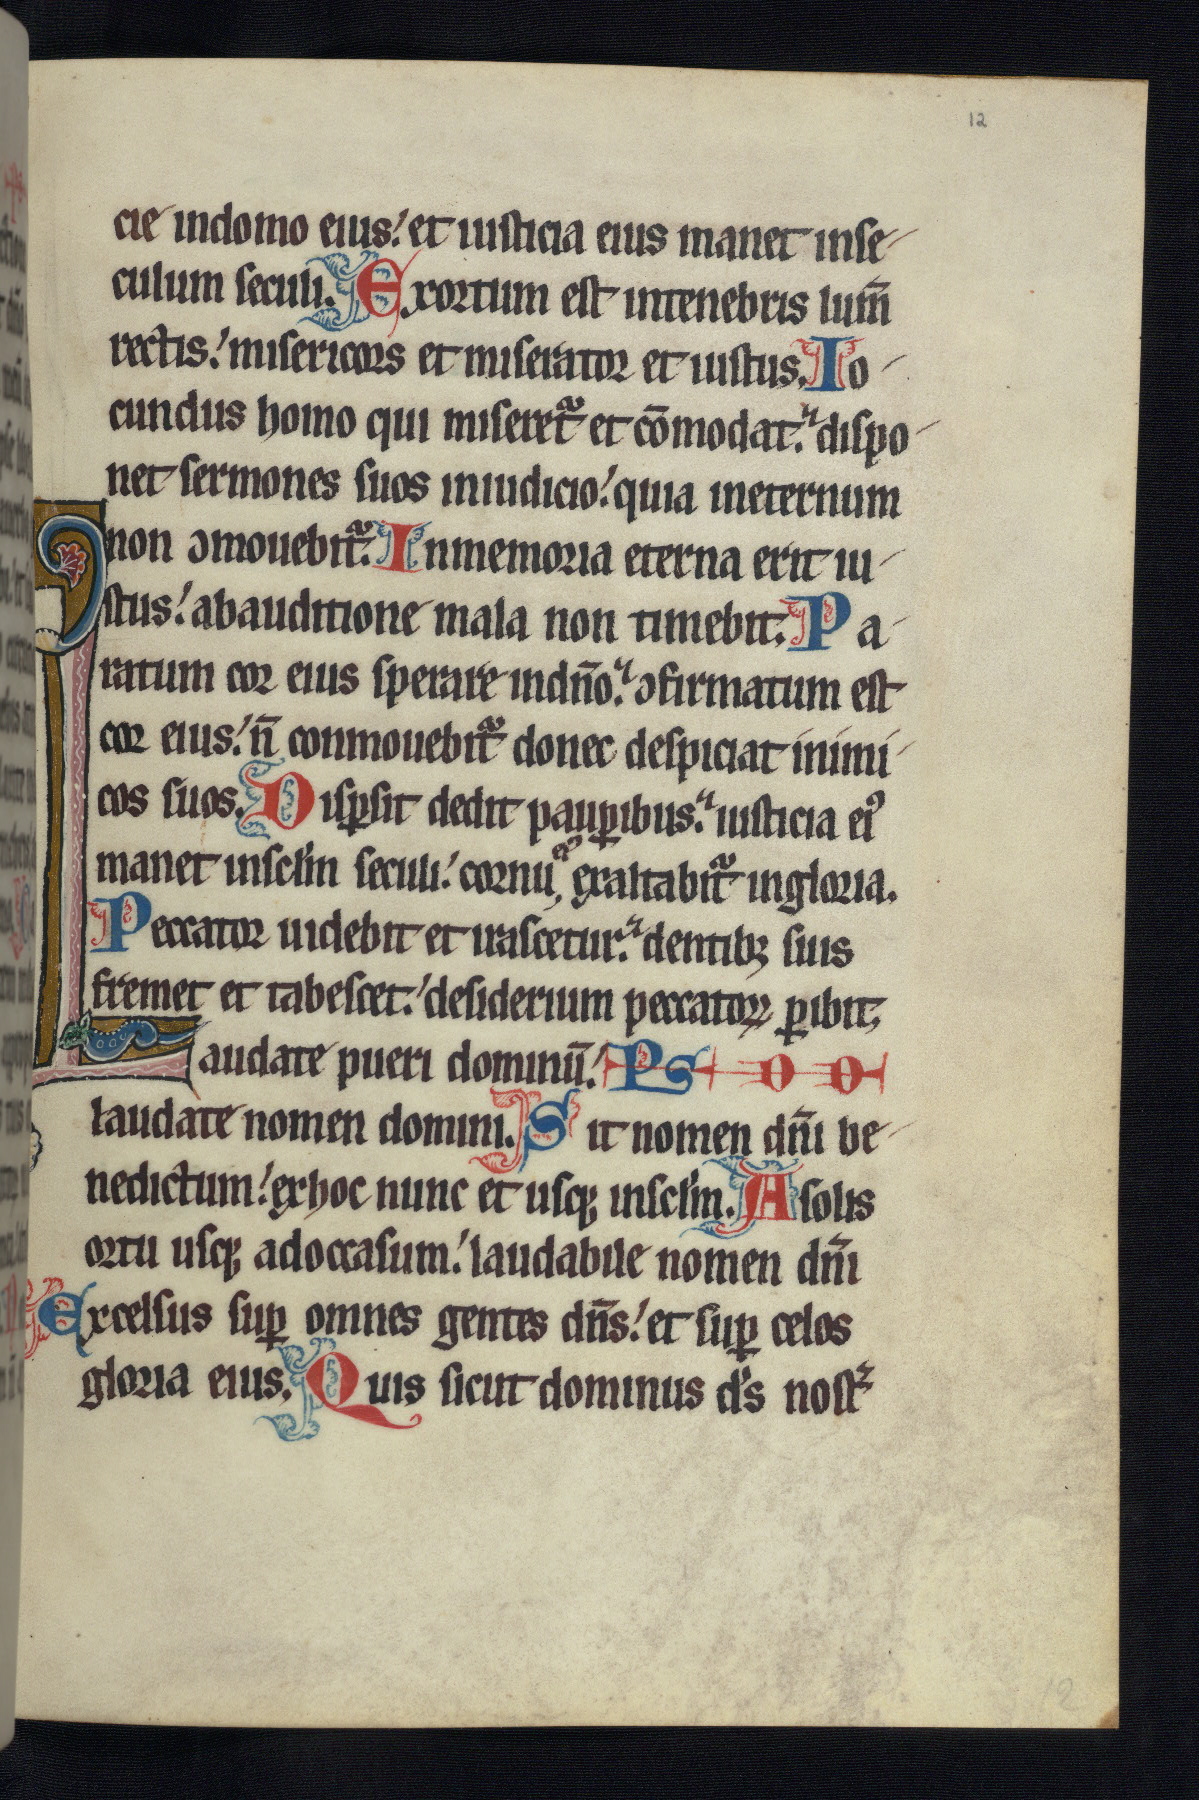 12
cie indomo eius: et iusticia eius manet inse-
culum seculi. Exortum est intenebris lum̄
rectis: misericors et miserator et iustus. Io-
cundus homo qui miseret᷑ et cōmodat: dispo-
net sermones suos iniudicio: quia ineternum
non ↄmouebit᷑. Inmemoria eterna erit iu-
stus: abauditione mala non timebit. Pa-
ratum cor eius sperare indn̄o: ↄfirmatum est
cor eius: n̄ conmouebit᷑ donec despiciat inimi-
cos suos. Disꝑsit dedit pauꝑibus: iusticia eiꝰ
manet inscl̄m seculi: cornu eiꝰ exaltabit᷑ ingloria.
Peccator uidebit et irascetur: dentibꝫ suis
fremet et tabescet: desiderium peccatoꝝ ꝑibit.
Laudate pueri dominū: Ps
laudate nomen domini. Sit nomen dn̄i be-
nedictum: exhoc nunc et usqꝫ inscl̄m. A solis
ortu usqꝫ adoccasum: laudabile nomen dn̄i
Excelsus suꝑ omnes gentes dn̄s: et suꝑ celos
gloria eius. Quis sicut dominus ds̄ nost᷑
12